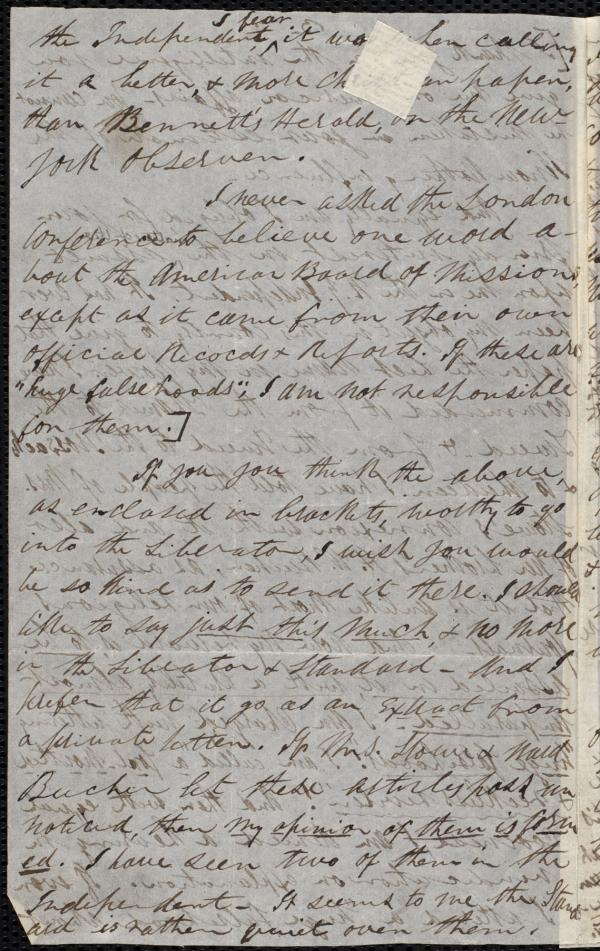 I fear
the Independent, it was when calling
it a better, & more an paper,
than Bennett's Herald, or the New
York Observer.
I never asked the London
Conference to believe one word a-
bout the American Board of Missions,
except as it came from their own
official Records & Reports. If these are
"huge falsehoods", I am not responsible
for them.]
If you you think the above,
as enclosed in brackets, worthy to go
into the Liberator, I wish you would
be so kind as to send it there. I should
like to say just this much, & no more
in the Liberator & Standard - And I
prefer that it go as an Extract from
a private letter. If Mrs. Stowe & Ward
Beecher let these articles pass un
noticed, then my opinion of them is form
ed. I have seen two of them in the
Independent - It seems to me the Stand
ard is rather quiet over them.